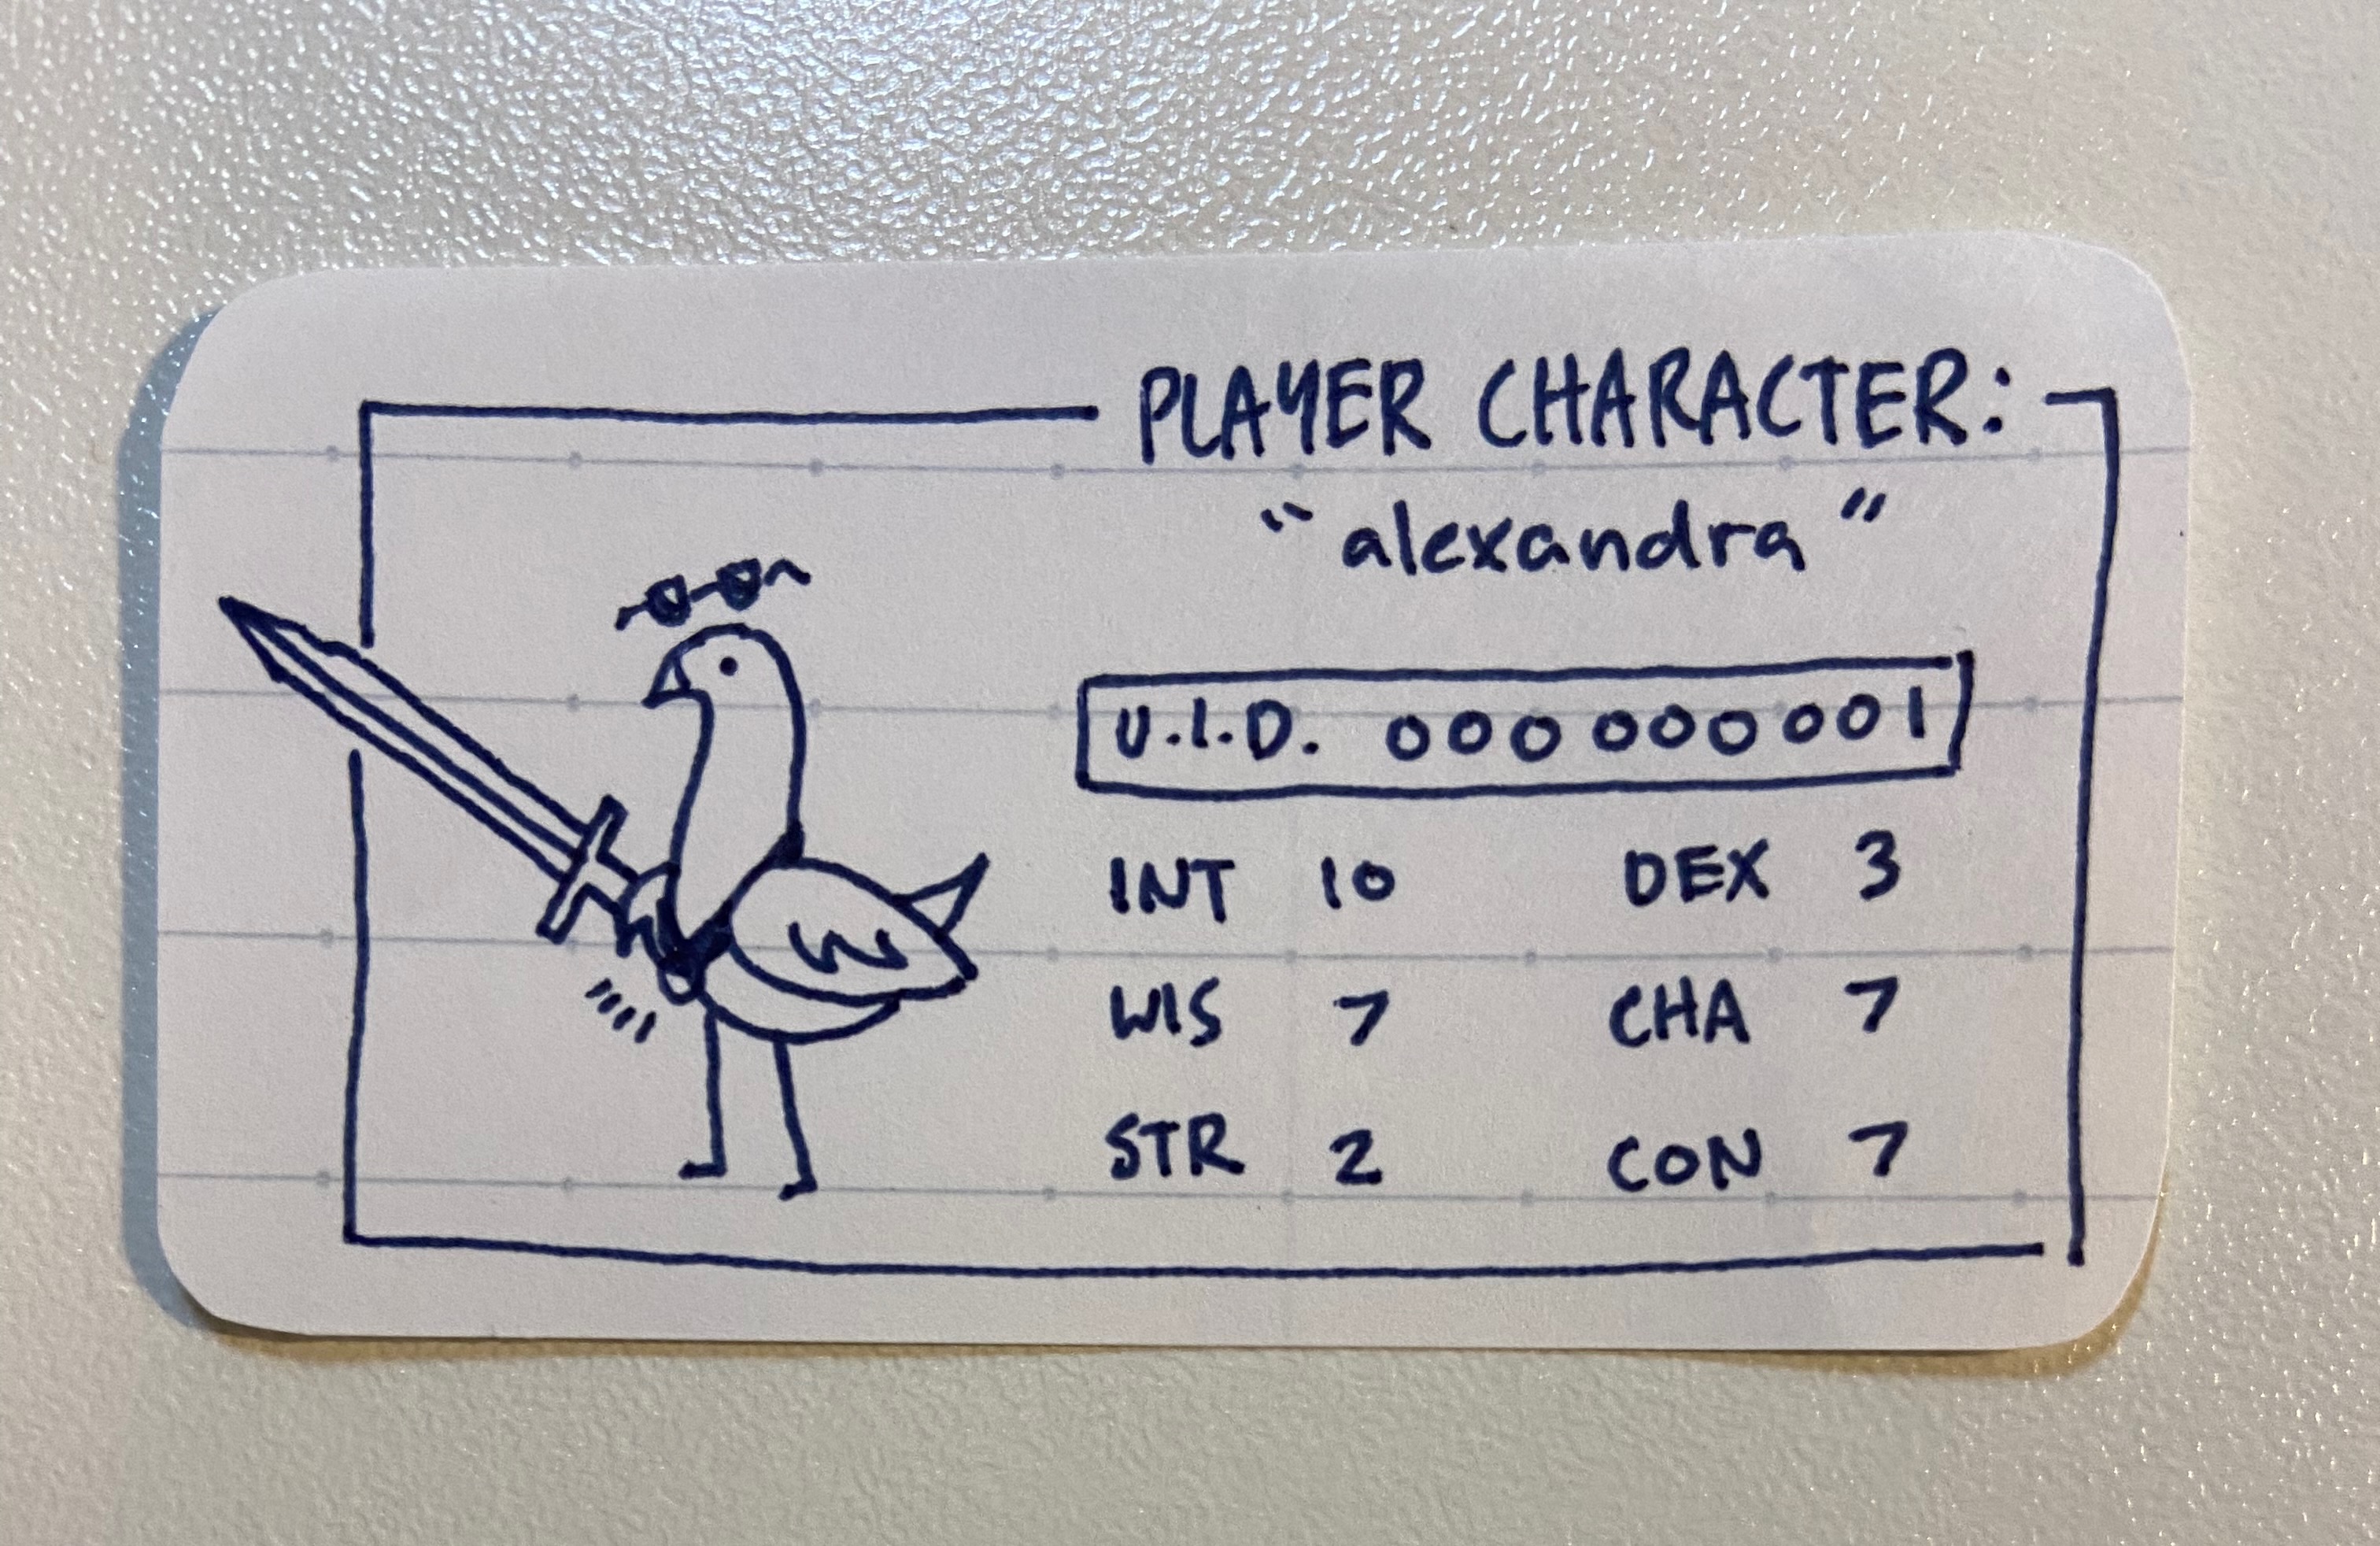 PLAYER CHARACTER:
"alexandra"
U.I.D. 000 000 001
INT 10 DEX 3
WIS 7 CHA 7
STR 2 CON 7